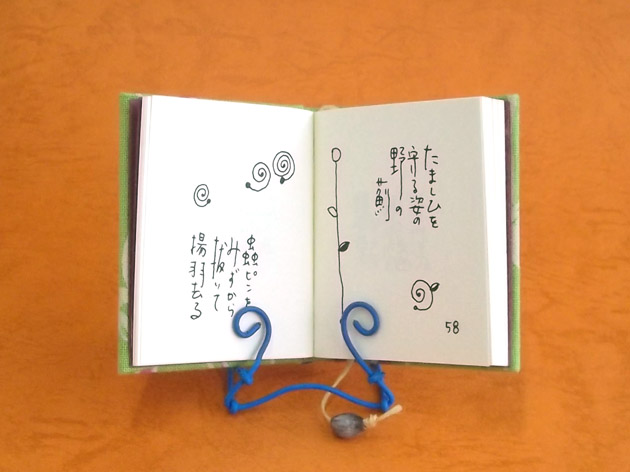 たましひを
守る姿の
野の
薊
58
蟲ピンを
みずから
抜いて
揚羽去る